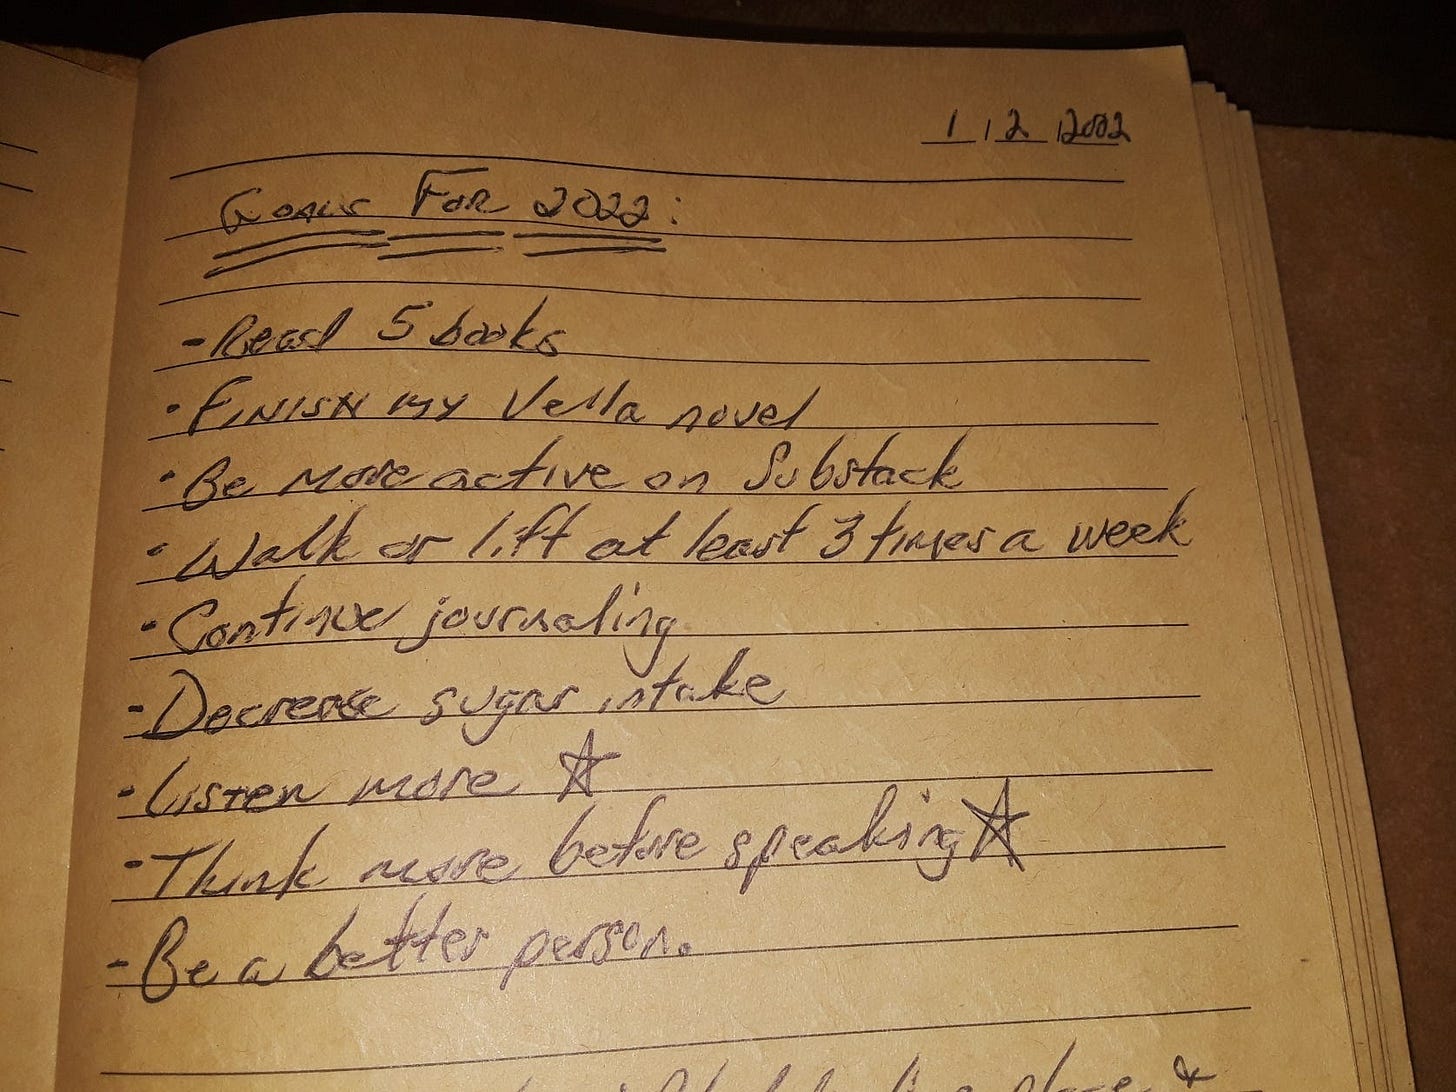 1/2/2022
Goals For 2022:
- Read 5 books
- Finish my Vella novel
- Be more active on Substack
- Walk or lift at least 3 times a week
- Continue journaling
- Decrease sugar intake
- Listen more ☆
- Think more before speaking ☆
- Be a better person.